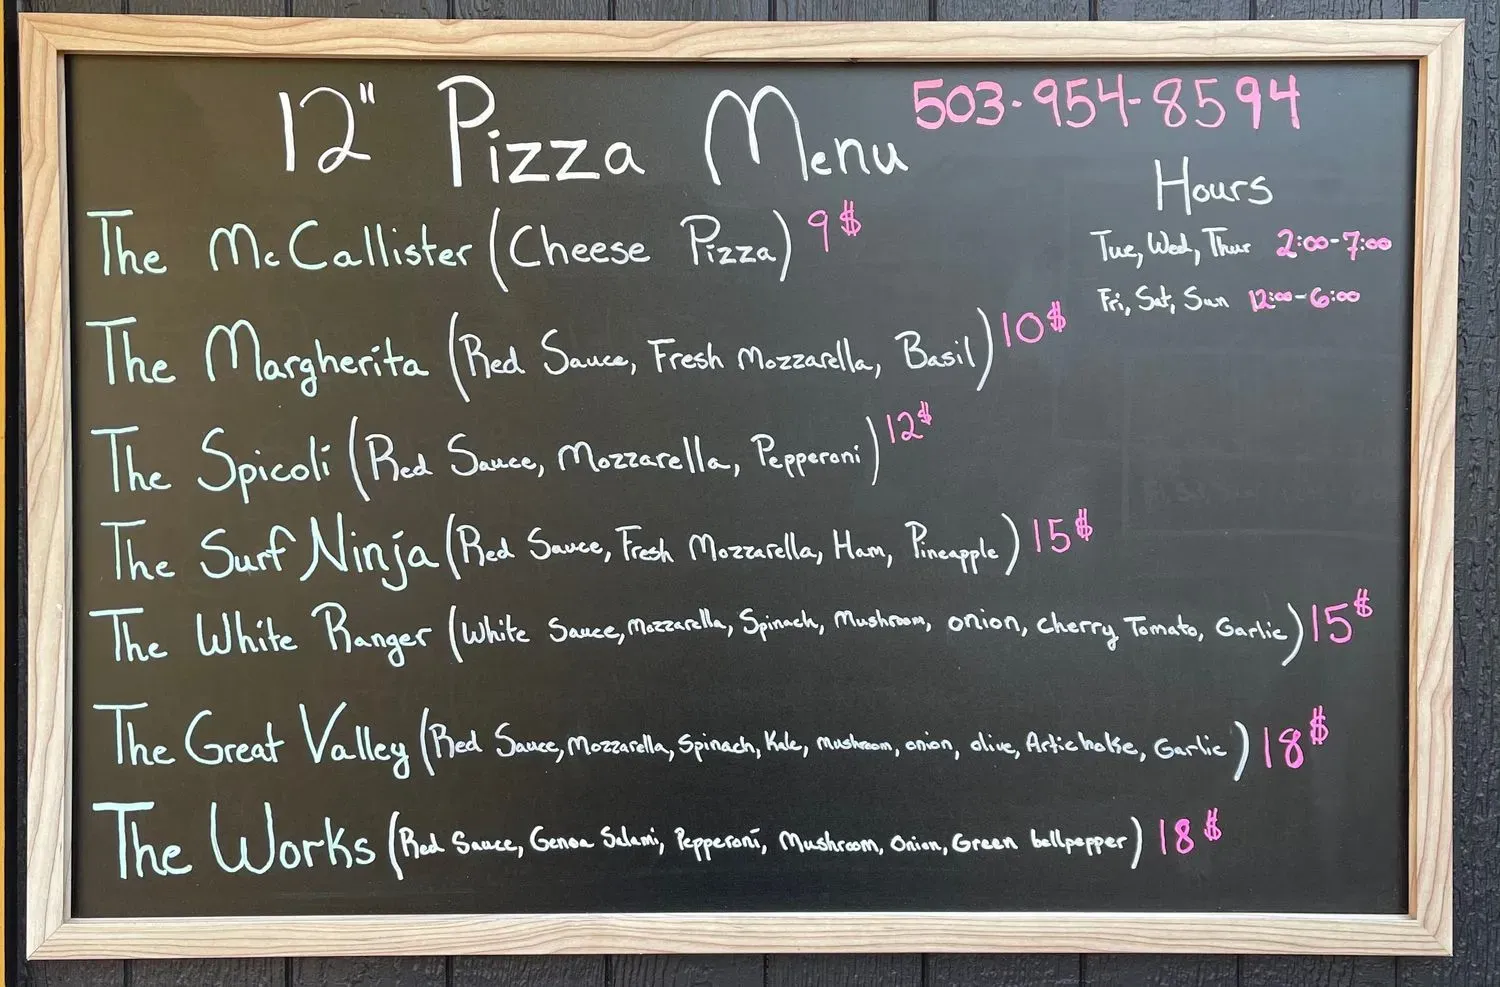 12" Pizza Menu
503-954-8594
Hours
Tue, Wed, Thur 2:00-7:00
Fri, Sat, Sun 12:00-6:00
The McCallister (Cheese Pizza) 9$
The Margherita (Red Sauce, Fresh Mozzarella, Basil) 10$
The Spicoli (Red Sauce, Mozzarella, Pepperoni) 12$
The Surf Ninja (Red Sauce, Fresh Mozzarella, Ham, Pineapple) 15$
The White Ranger (White Sauce, Mozzarella, Spinach, Mushroom, onion, cherry Tomato, Garlic) 15$
The Great Valley (Red Sauce, Mozzarella, Spinach, Kale, mushroom, onion, olive, Artichoke, Garlic) 18$
The Works (Red Sauce, Genoa Salami, Pepperoni, Mushroom, Onion, Green bellpepper) 18$